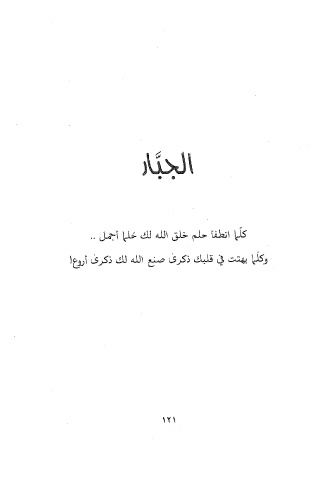 الجبَّار
كلّما انطفأ حلم خلق الله لك حُلما أجمل ..
وكلّما بهتت في قلبك ذكرى صنع الله لك ذكرى أروع!
١٢١